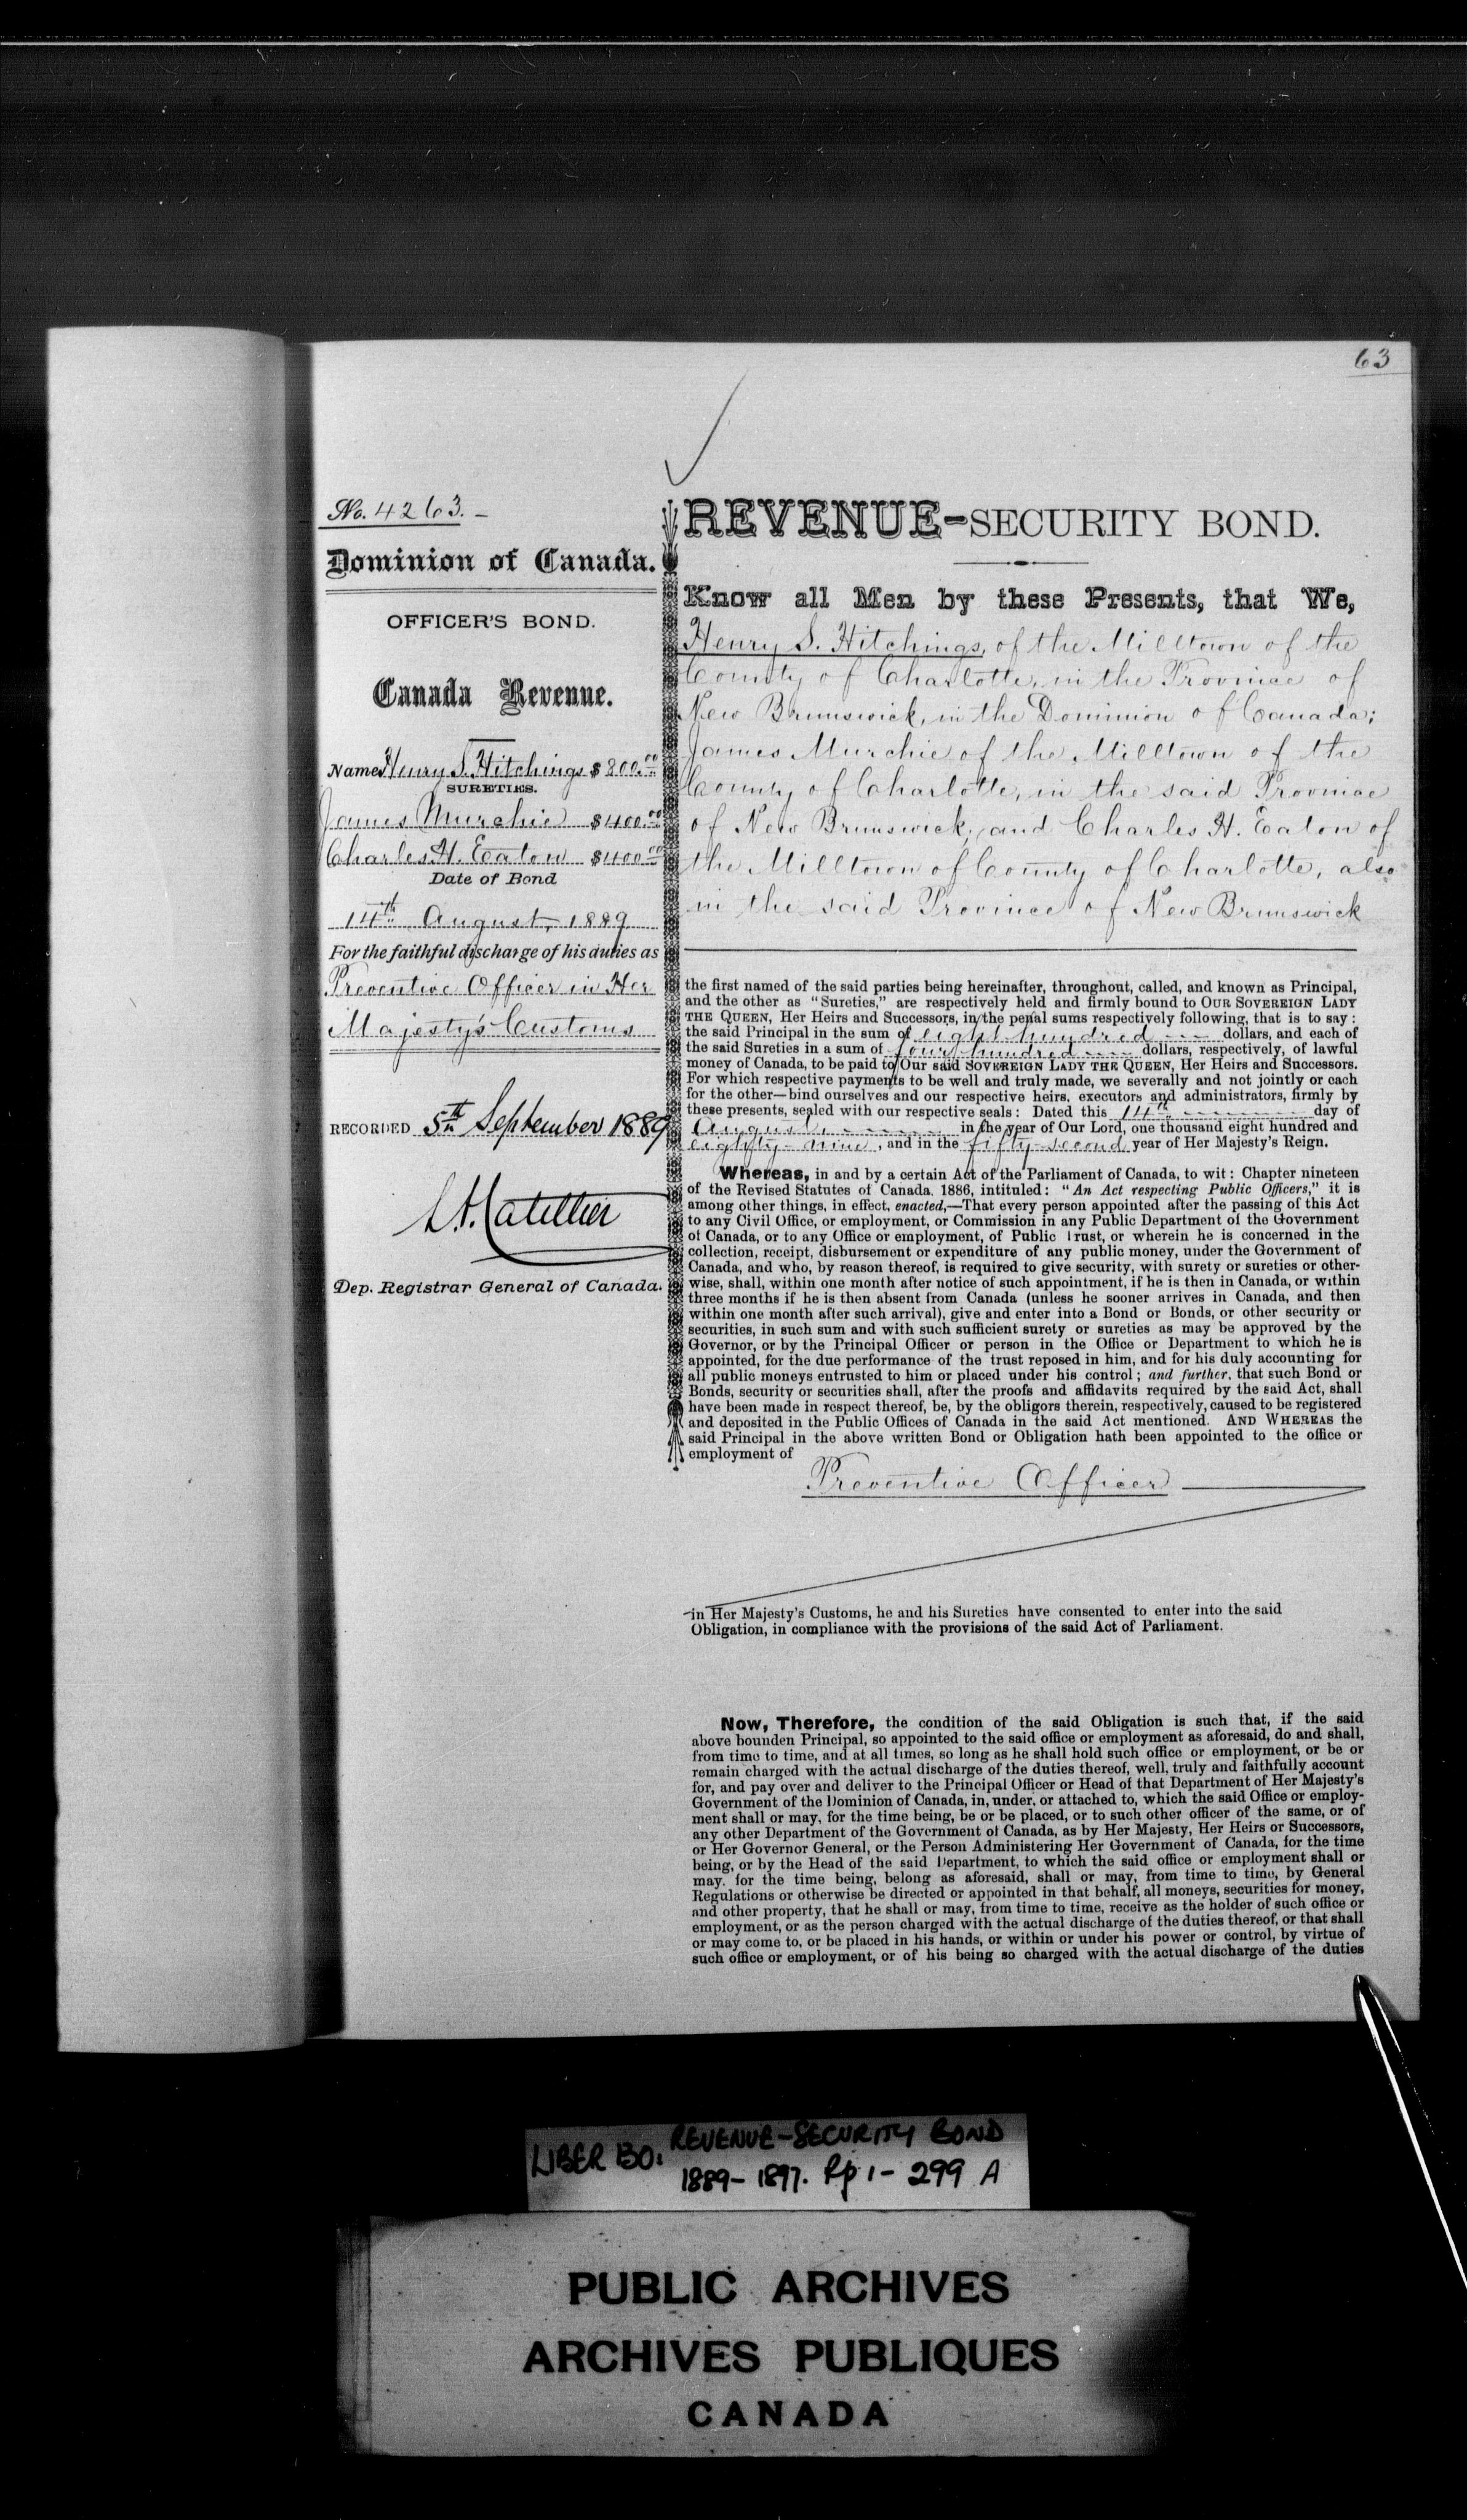 63
No. 4263. -
Dominion of Canada.
OFFICER'S BOND.
Canada Revenue.
Name Henry S. Hitchings $800.00
SURETIES.
James Murchie $400.00
Charles H. Eaton $400.00
Date of Bond
14th August, 1889
For the faithful discharge of his duties as
Preventive Officer in Her
Majesty's Customs
RECORDED 5th September 1889
Dep. Registrar General of Canada.
REVENUE-SECURITY BOND.
Know all Men by these Presents, that We,
Henry S. Hitchings, of the Milltown of the
County of Charlotte, in the Province of
New Brunswick, in the Dominion of Canada;
James Murchie of the Milltown of the
County of Charlotte, in the said Province
of New Brunswick, and Charles H. Eaton of
the Milltown of County of Charlotte, also
in the said Province of New Brunswick
the first named of the said parties being hereinafter, throughout, called, and known as Principal,
and the other as "Sureties," are respectively held and firmly bound to OUR SOVEREIGN LADY
THE QUEEN, Her Heirs and Successors, in the penal sums respectively following, that is to say:
the said Principal in the sum of eight hundred dollars, and each of
the said Sureties in a sum of four hundred dollars, respectively, of lawful
money of Canada, to be paid to Our said SOVEREIGN LADY THE QUEEN, Her Heirs and Successors.
For which respective payments to be well and truly made, we severally and not jointly or each
for the other—bind ourselves and our respective heirs, executors and administrators, firmly by
these presents, sealed with our respective seals: Dated this 14th day of
August, in the year of Our Lord, one thousand eight hundred and
eighty-nine, and in the fifty-second year of Her Majesty's Reign.
Whereas, in and by a certain Act of the Parliament of Canada, to wit: Chapter nineteen
of the Revised Statutes of Canada, 1886, intituled: "An Act respecting Public Officers," it is
among other things, in effect, enacted,—That every person appointed after the passing of this Act
to any Civil Office, or employment, or Commission in any Public Department of the Government
of Canada, or to any Office or employment, of Public Trust, or wherein he is concerned in the
collection, receipt, disbursement or expenditure of any public money, under the Government of
Canada, and who, by reason thereof, is required to give security, with surety or sureties or other-
wise, shall, within one month after notice of such appointment, if he is then in Canada, or within
three months if he is then absent from Canada (unless he sooner arrives in Canada, and then
within one month after such arrival), give and enter into a Bond or Bonds, or other security or
securities, in such sum and with such sufficient surety or sureties as may be approved by the
Governor, or by the Principal Officer or person in the Office or Department to which he is
appointed, for the due performance of the trust reposed in him, and for his duly accounting for
all public moneys entrusted to him or placed under his control; and further, that such Bond or
Bonds, security or securities shall, after the proofs and affidavits required by the said Act, shall
have been made in respect thereof, be, by the obligors therein, respectively, caused to be registered
and deposited in the Public Offices of Canada in the said Act mentioned. AND WHEREAS the
said Principal in the above written Bond or Obligation hath been appointed to the office or
employment of
Preventive Officer
in Her Majesty's Customs, he and his Sureties have consented to enter into the said
Obligation, in compliance with the provisions of the said Act of Parliament.
Now, Therefore, the condition of the said Obligation is such that, if the said
above bounden Principal, so appointed to the said office or employment as aforesaid, do and shall,
from time to time, and at all times, so long as he shall hold such office or employment, or be or
remain charged with the actual discharge of the duties thereof, well, truly and faithfully account
for, and pay over and deliver to the Principal Officer or Head of that Department of Her Majesty's
Government of the Dominion of Canada, in, under, or attached to, which the said Office or employ-
ment shall or may, for the time being, be or be placed, or to such other officer of the same, or of
any other Department of the Government of Canada, as by Her Majesty, Her Heirs or Successors,
or Her Governor General, or the Person Administering Her Government of Canada, for the time
being, or by the Head of the said Department, to which the said office or employment shall or
may, for the time being, belong as aforesaid, shall or may, from time to time, by General
Regulations or otherwise be directed or appointed in that behalf, all moneys, securities for money,
and other property, that he shall or may, from time to time, receive as the holder of such office or
employment, or as the person charged with the actual discharge of the duties thereof, or that shall
or may come to, or be placed in his hands, or within or under his power or control, by virtue of
such office or employment, or of his being so charged with the actual discharge of the duties
LIBER BO: REVENUE-SECURITY BOND
1889-1897. Pp 1-299 A
PUBLIC ARCHIVES
ARCHIVES PUBLIQUES
CANADA